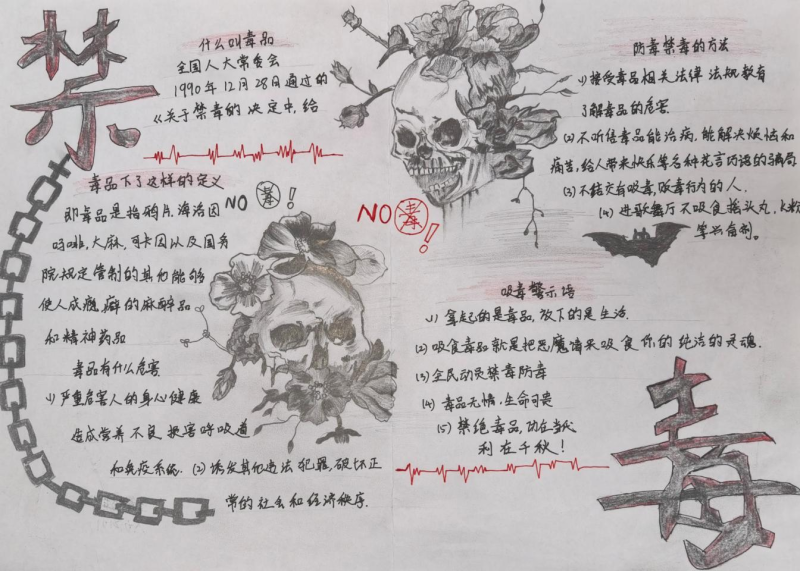 禁
什么叫毒品
全国人大常委会
1990年12月28日通过的
《关于禁毒的决定中,给
毒品下了这样的定义
即毒品是指鸦片,海洛因
吗啡,大麻,可卡因以及国务
院规定管制的其他能够
使人成瘾癖的麻醉品
和精神药品
毒品有什么危害
(1)严重危害人的身心健康
造成营养不良 损害呼吸道
和免疫系统. (2)诱发其他违法犯罪,破坏正
常的社会和经济秩序.
NO 毒!
NO 毒!
防毒禁毒的方法
(1)接受毒品相关法律法规教育
了解毒品的危害
(2)不听信毒品能治病,能解决烦恼和
痛苦,给人带来快乐等各种花言巧语的骗局
(3)不结交有吸毒,贩毒行为的人.
(4)进歌舞厅不吸食摇头丸,K粉
等兴奋剂。
吸毒警示语
(1)拿起的是毒品,放下的是生活.
(2)吸食毒品就是把恶魔请来吸食你的纯洁的灵魂.
(3)全民动员禁毒防毒
(4)毒品无情,生命可贵
(5)禁绝毒品,功在当代
利在千秋!
毒